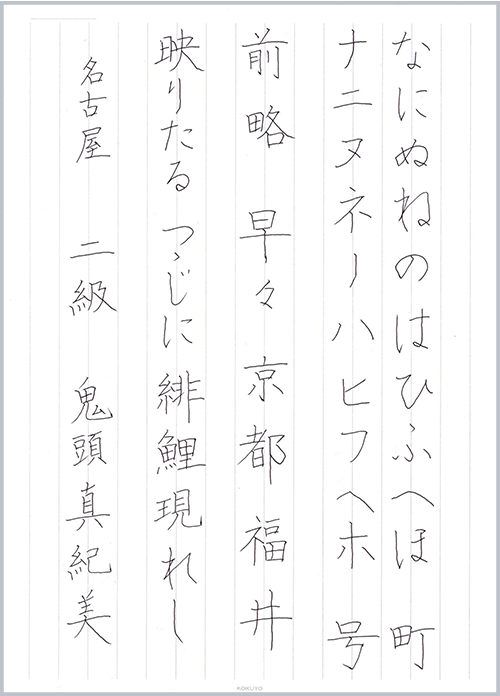 なにぬねのはひふへほ　町
ナニヌネノハヒフヘホ　号
前略　早々　京都福井
映りたるつゝじに緋鯉現れし
名古屋　二級　鬼頭真紀美
KOKUYO